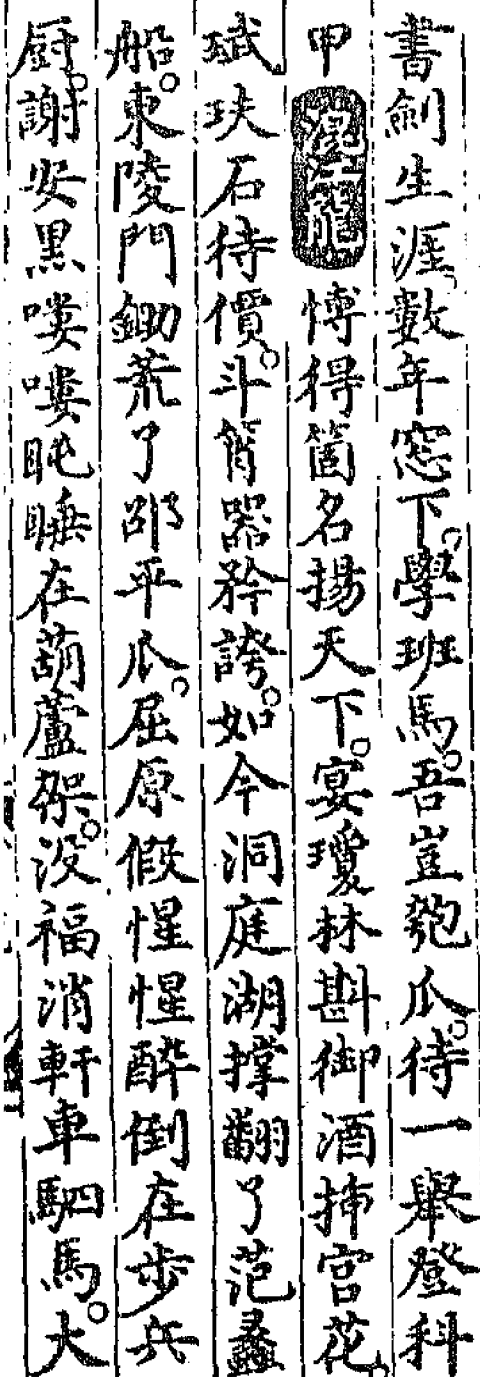 書劍生涯數年窓下。學班馬。吾豈匏瓜。待一舉登科
甲 混江龍 愽得箇名揚天下。宴瓊林斟御酒挿宫花。
珷玞石待價。斗筲器矜誇。如今洞庭湖撑翻了范蠡
船。東陵門鋤荒了邵平瓜。屈原假惺惺醉倒在步兵
厨。謝安黒嘍嘍盹睡在葫蘆架。没福消軒車駟馬。大